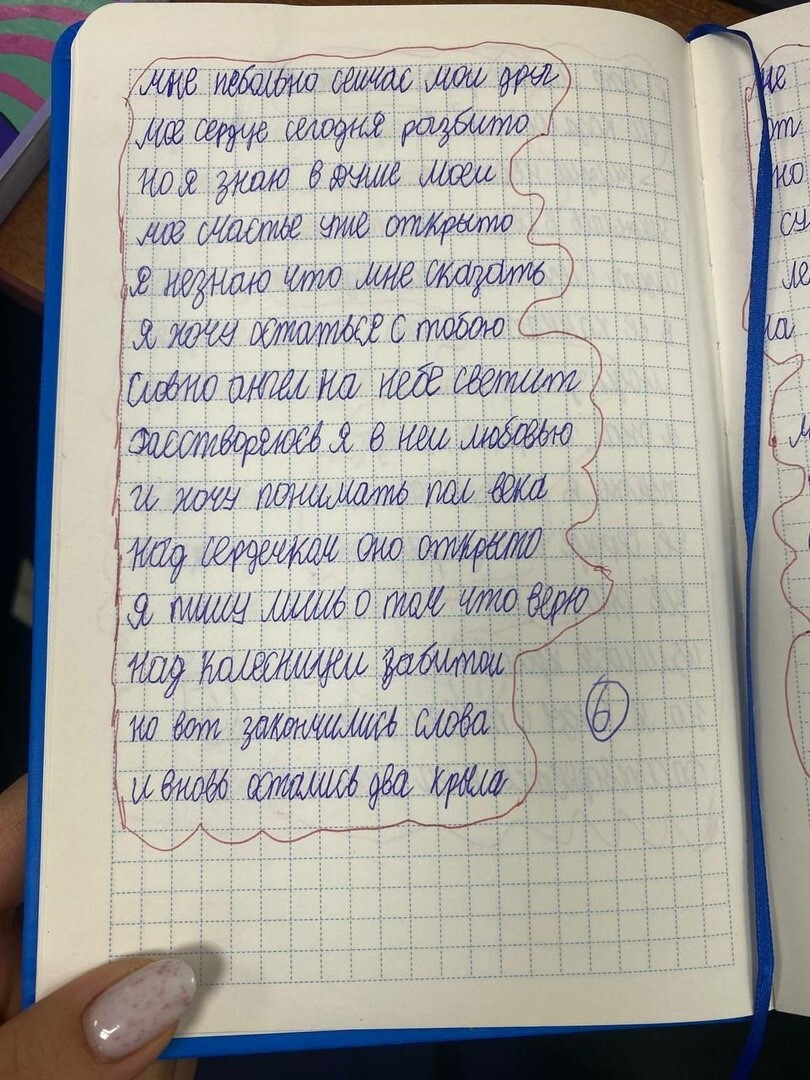 мне небольно сейчас мой друг
мое сердце сегодня разбито
но я знаю в душе моей
мое счастье уже открыто
я незнаю что мне сказать
я хочу остаться с тобою
словно ангел на небе светит
расстворяюсь я в ней любовью
и хочу понимать пол века
над сердечком оно открыто
я пишу лишь о том что верю
над колесницей забытой
но вот закончились слова
и вновь остались два крыла
6